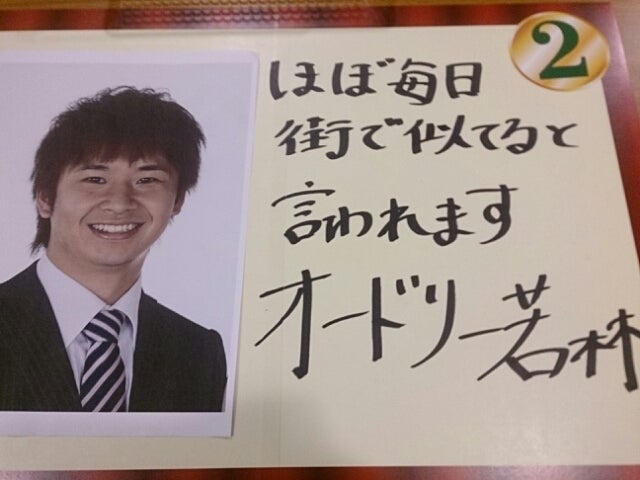 2
ほぼ毎日
街で似てると
言われます
オードリー若林